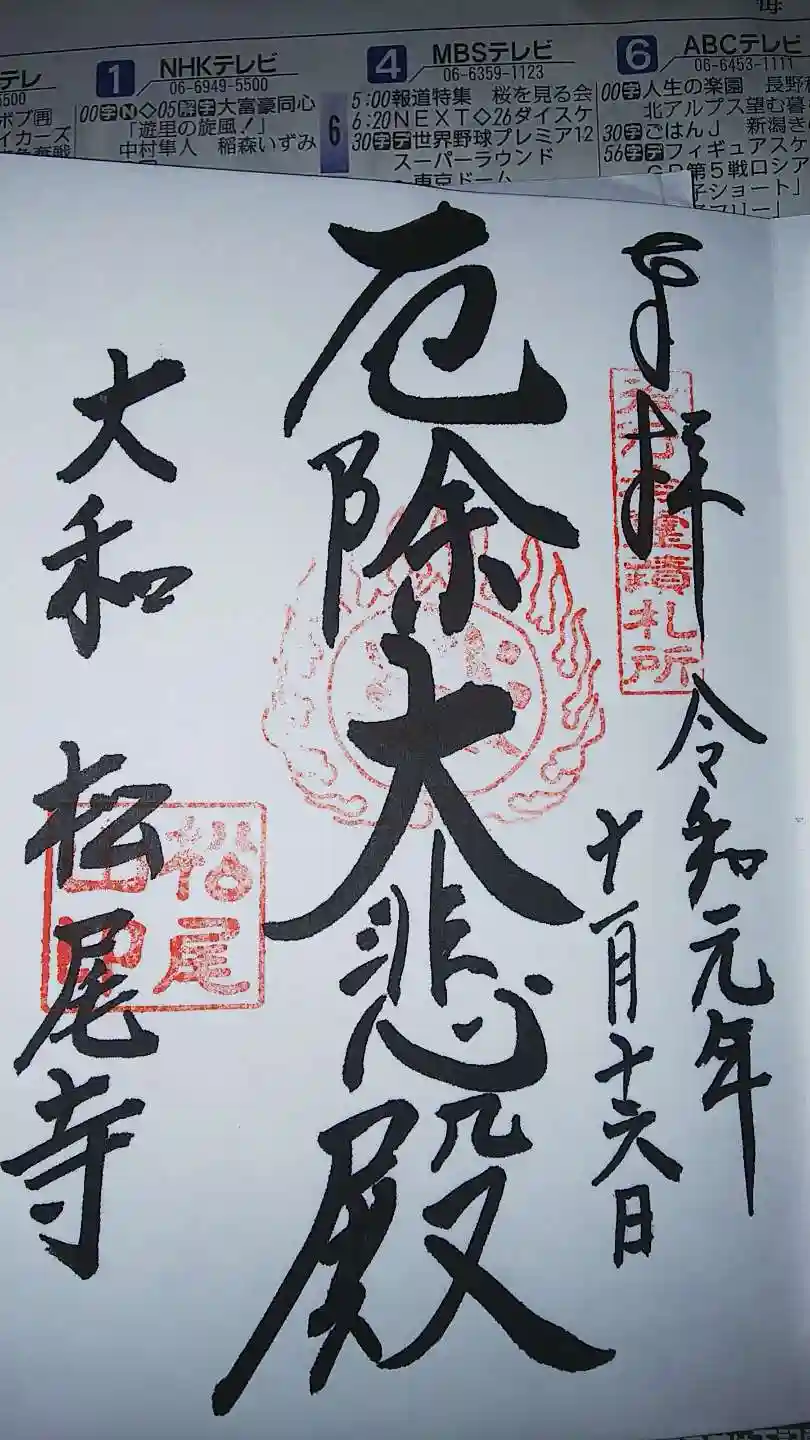 毎
テレ
5500
ポブ画
イカーズ
1 NHKテレビ
06-6949-5500
00字N◇05解字大富豪同心
「遊里の旋風！」
中村隼人　稲森いずみ
6
4 MBSテレビ
06-6359-1123
5:00報道特集　桜を見る会
6:20NEXT◇26ダイスケ
30字デ世界野球プレミア12
スーパーラウンド
東京ドーム
6 ABCテレビ
06-6453-1111
00字人生の楽園　長野
北アルプス望む暮
30字ごはんJ　新潟き
56字デフィギュアスケ
GP第5戦ロシア
子ショート」
子フリー」
奉拝
霊場札所
令和元年
十一月十六日
厄除大悲殿
大和　松尾寺
松尾
山印